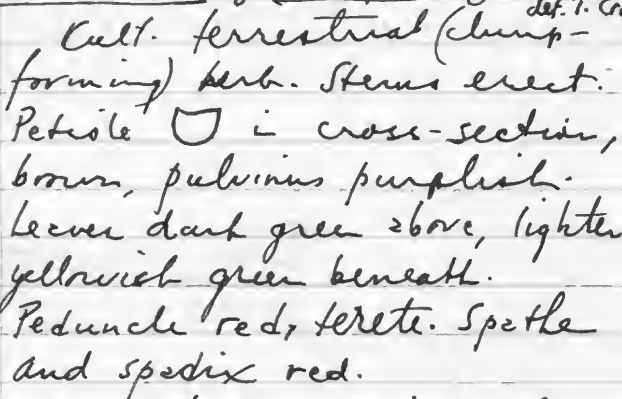 det. T. Cro
Cult. terrestrial (clump-
forming) herb. Stems erect.
Petiole in cross-section,
brown, pulvinus purplish.
Leaves dark green above, lighter
yellowish green beneath.
Peduncle red, terete. Spathe
and spadix red.